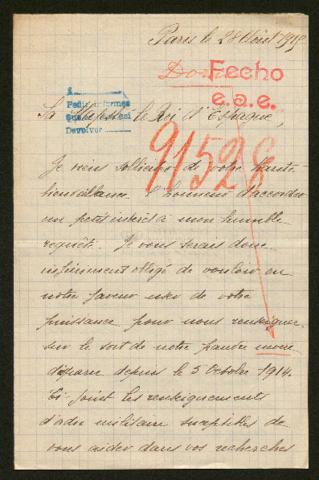 Paris le 28 Août 1915
Fecho
e.a.e.
Pedir informes
Devolver
Sa Majesté le Roi d'Espagne,
91528
Je viens solliciter de votre haute
bienveillance l'honneur d'accorder
un petit intérêt à mon humble
requête. Je vous serais donc
infiniment obligé de vouloir en
notre faveur user de votre
puissance pour nous renseigner
sur le sort de notre pauvre
disparu depuis le 5 Octobre 1914.
Ci joint les renseignements
d'ordre militaire susceptibles de
vous aider dans vos recherches